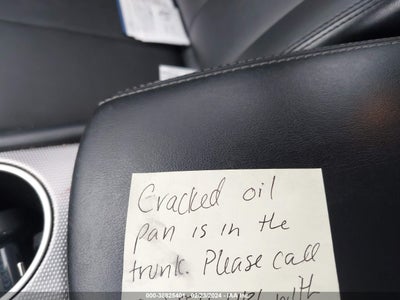 Cracked oil
pan is in the
trunk. Please call
with
000-38825401 - 02/23/2024 - IAAI